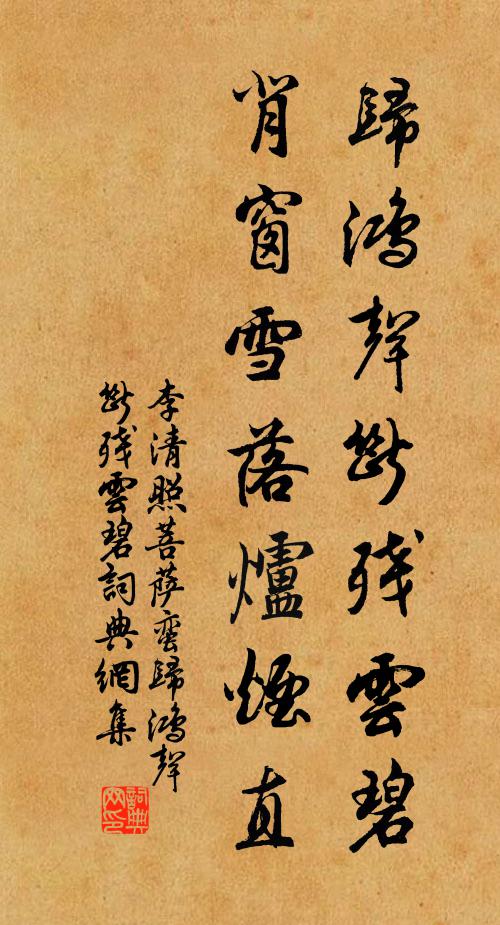 歸鴻聲斷殘雲碧
背窗雪落爐煙直
李清照菩薩蠻歸鴻聲
斷殘雲碧詞典網集
詞典網印